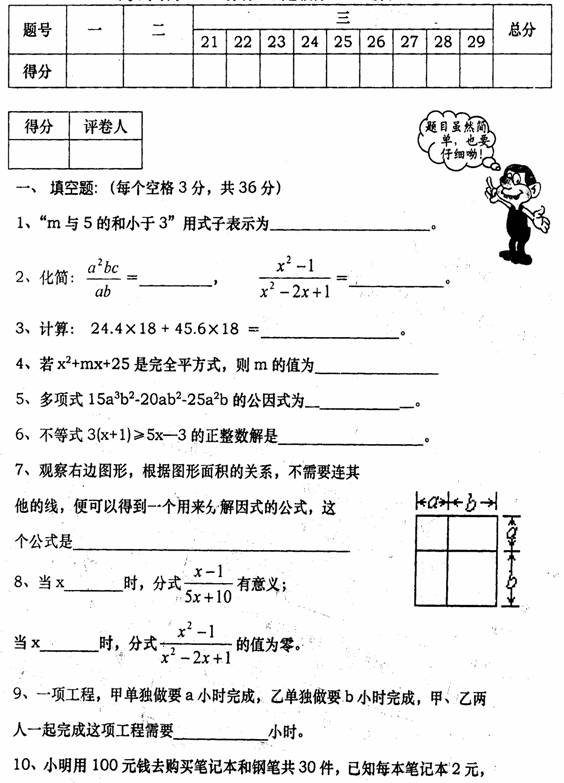 题号 一 二 三 总分
21 22 23 24 25 26 27 28 29
得分
得分 评卷人
题目虽然简
单，也要
仔细呦！
一、填空题:（每个空格 3 分，共 36 分）
1、“m 与 5 的和小于 3”用式子表示为________________。
2、化简: a²bc/ab =________， x²-1/x²-2x+1 =________。
3、计算: 24.4×18 + 45.6×18 =________________。
4、若 x²+mx+25 是完全平方式，则 m 的值为________________
5、多项式 15a³b²-20ab²-25a²b 的公因式为________________。
6、不等式 3(x+1)≥5x—3 的正整数解是________________。
7、观察右边图形，根据图形面积的关系，不需要连其
他的线，便可以得到一个用来分解因式的公式，这
个公式是________________
a b
a
b
8、当 x______时，分式 x-1/5x+10 有意义；
当 x______时，分式 x²-1/x²-2x+1 的值为零。
9、一项工程，甲单独做要 a 小时完成，乙单独做要 b 小时完成，甲、乙两
人一起完成这项工程需要____________小时。
10、小明用 100 元钱去购买笔记本和钢笔共 30 件，已知每本笔记本 2 元，